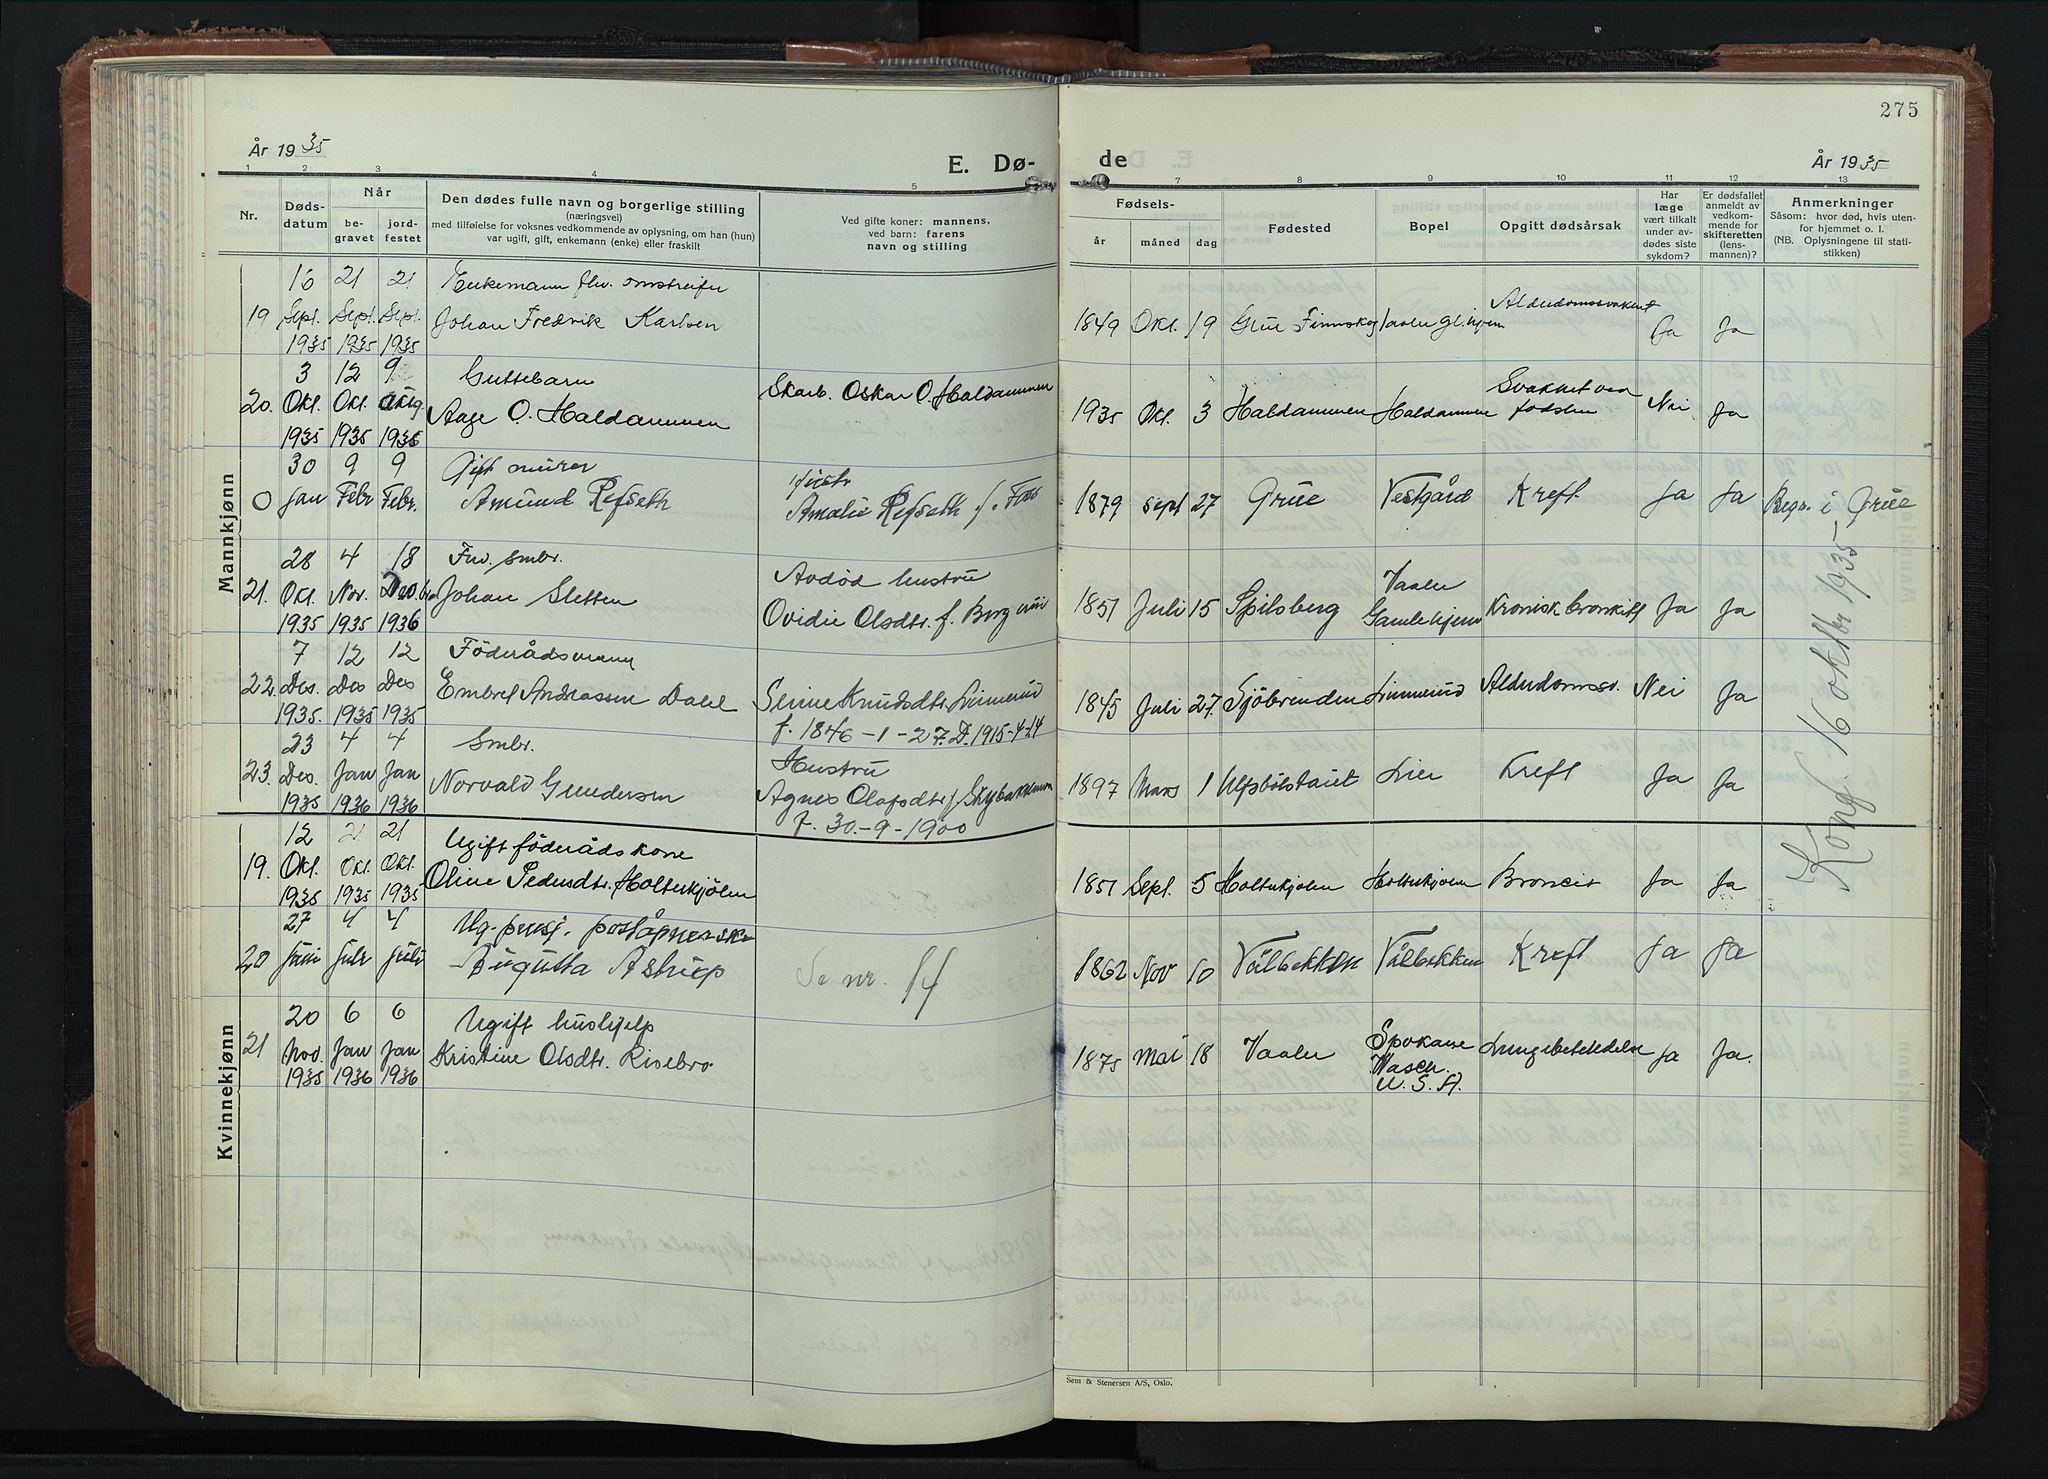 275
År 1935
E. Dø-
de
År 1935
1 2 3 4 5 7 8 9 10 11 12 13
Nr.
Døds-
datum
Når
be-
gravet
jord-
festet
Den dødes fulle navn og borgerlige stilling
(næringsvei)
med tilføielse for voksnes vedkommende av oplysning, om han (hun)
var ugift, gift, enkemann (enke) eller fraskilt
Ved gifte koner: mannens,
ved barn: farens
navn og stilling
Fødsels-
år måned dag
Fødested
Bopel
Opgitt dødsårsak
Har
læge
vært tilkalt
under av-
dødes siste
sykdom?
Er dødsfallet
anmeldt av
vedkom-
mende for
skifteretten
(lens-
mannen)?
Anmerkninger
Såsom: hvor død, hvis uten-
for hjemmet o. l.
(NB. Oplysningene til stati-
stikken)
Mannkjønn
16 21 21 Enkemann flv. omstreifer
19 Sept. Sept. Sept. Johan Fredrik Karlsen 1849 Okt. 19 Grue Finnskog Vaaler gl.hjem Alderdomssvakhet Ja Ja
1935 1935 1935
3 12 9 Guttebarn Skarb. Oskar O. Haldammen Svakhet ved
20. Okt. Okt. Aage O. Haldammen 1935 Okt. 3 Haldammen Haldammen fødslen Nei Ja
1935 1935 1936
30 9 9 Gift murer hustr
0 Jan Febr Febr. Amund Refseth Amalie Refseth f. 1879 Sept 27 Grue Vestgård Kreft Ja Ja Begr. i Grue
28 4 18 Fhv. smbr. Avdød hustru Vaaler
21. Okt. Nov. Johan Sletten Ovidie Olsdtr. f. Berg 1851 Juli 15 Spilsberg Gamlehjem Kronisk bronkitt Ja Ja
1935 1935 1936
7 12 12 Föderådsmann
22. Des. Des Des Embret Andreassen Dahl Serine Knudsdtr. Linnerud 1845 Juli 27. Sjöbrenden Linnerud Alderdomssv. Nei Ja
1935. 1935 1935 f. 1846-1-27. D. 1915-4-14
23 4 4 Smbr. Hustru
23. Des. Jan Jan Norvald Gundersen Agnes Olafsdtr. f. Skybakkmoen 1897 Mars 1 Ulfsbölstaiet Lier Kreft Ja Ja
1935 1936 1936 f. 30.-9-1900
Konf. 16 oktbr 1935
Kvinnekjønn
12 21 21 Ugift föderådskone
19. Okt. Okt. Okt. Oline Pedersdtr. Holterkjölen 1851 Sept. 5 Holterkjölen Holterkjölen Ja Ja
1935 1935 1935
27 4 4 Ug. pensj. poståpnerske
20 Juni Juli Juli Augusta Astrup Se nr. 14 1862 Nov 10 Vålbekken Vålbekken Kreft Ja Ja
20 6 6 Ugift hushjelp Spokane
21 Nov. Jan Jan Kristine Olsdtr. Risebro 1875 Mai 18 Vaaler Wasch. Lungebetendelse Ja Ja.
1935 1936 1936 U. S. A.
Sem & Stenersen A/S, Oslo.